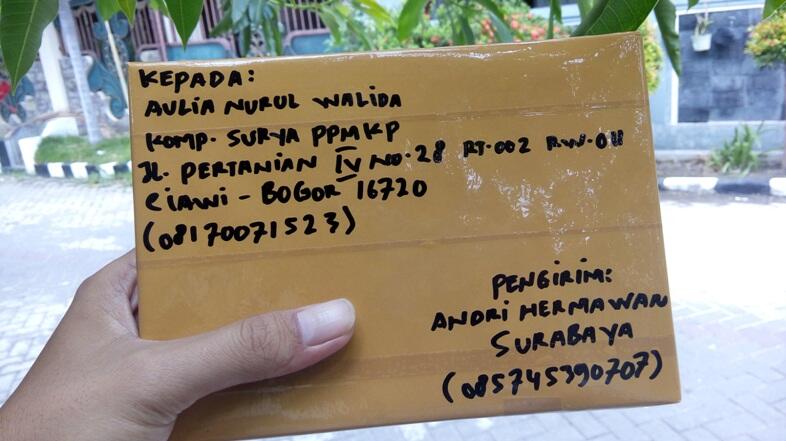 KEPADA:
AULIA NURUL WALIDA
KOMP. SURYA PPMKP
JL. PERTANIAN IV NO.28 RT.002 RW.011
CIAWI - BOGOR 16720
(08170071523)
PENGIRIM:
ANDRI HERMAWAN
SURABAYA
(085745390707)